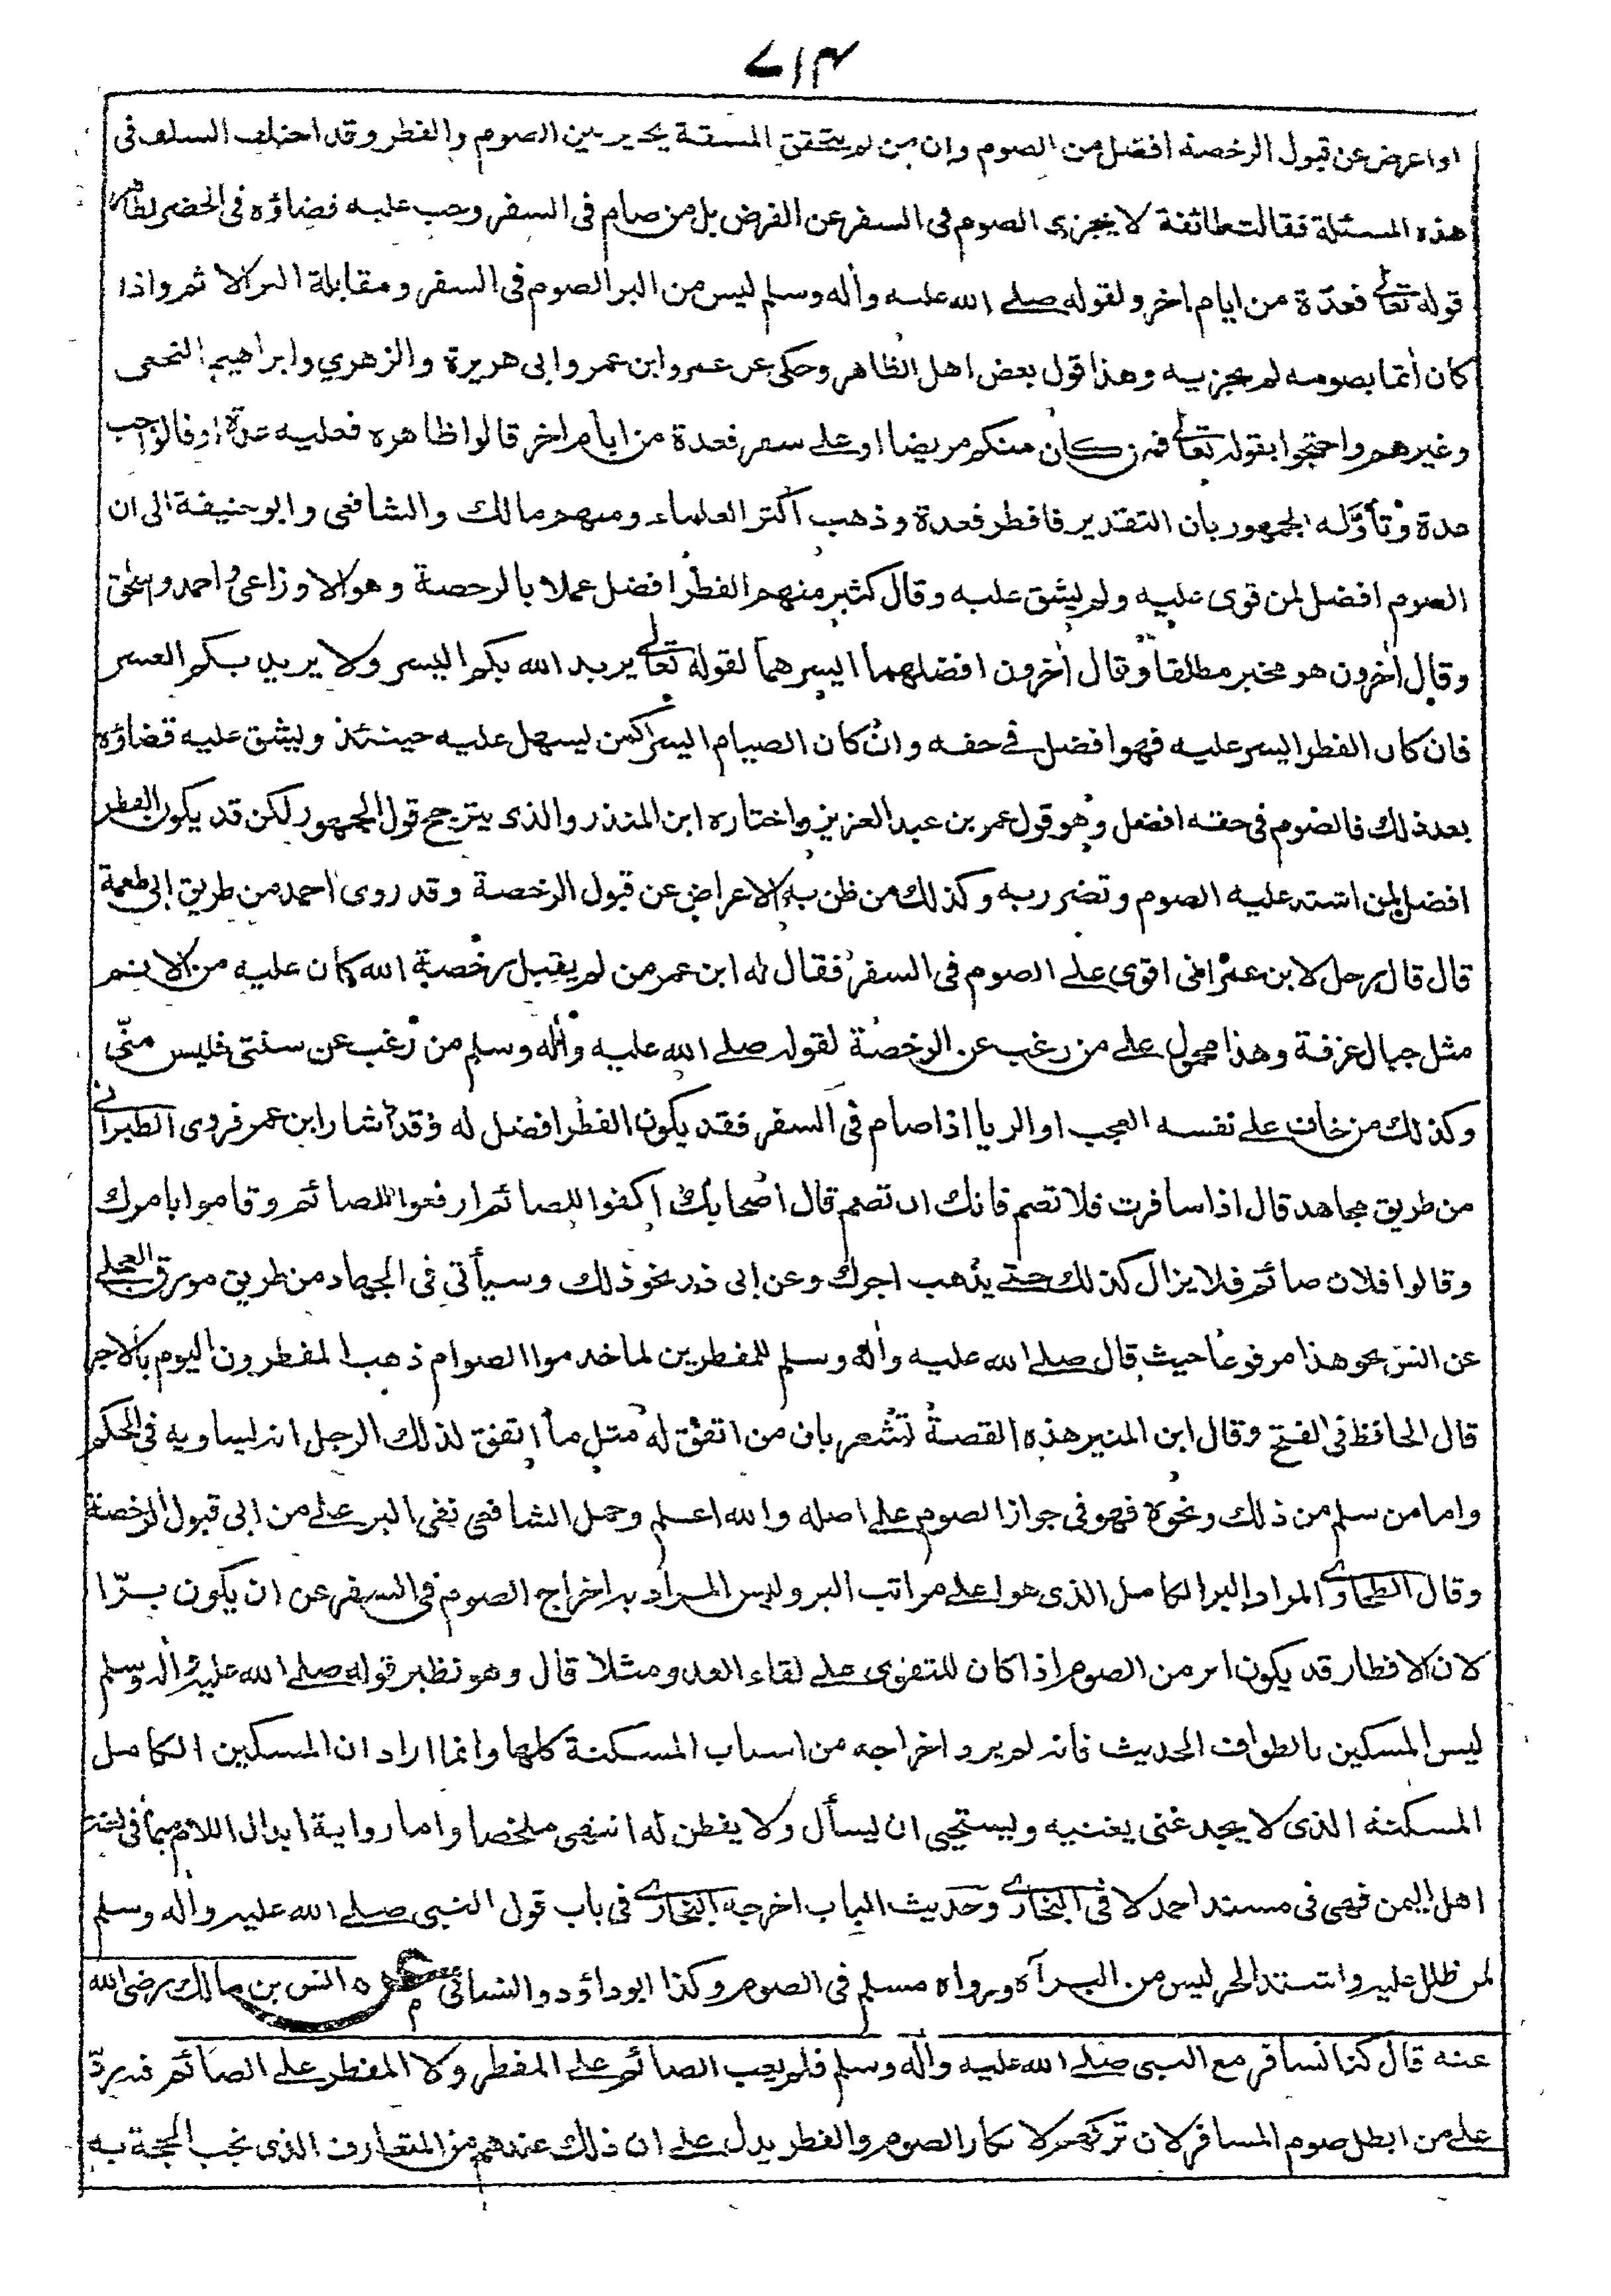 ٤١٧
او اعرض عن قبول الرخصة افضل من الصوم وان من لم يتحقق المشقة يخير بين الصوم والفطر وقد اختلف السلف فى
هذه المسئلة فقالت طائفة لا يجزى الصوم فى السفر عن الفرض بل من صام فى السفر وجب عليه قضاؤه فى الحضر لظاهر
قوله تعالى فعدّة من ايام اخر ولقوله صلى الله عليه وأله وسلم ليس من البر الصوم فى السفر ومقابلة البر الاثم واذا
كان أثما بصومه لم يجزيه وهذا قول بعض اهل الظاهر وحكى عن عمر وابن عمر وابى هريرة والزهري وابراهيم النخعى
وغيرهم واحتجوا بقوله تعالى فمن كان منكم مريضا او على سفر فعدة من ايام اخر قالوا ظاهره فعليه عدة او فالواجب
عدة وتأوّله الجمهور بان التقدير فافطر فعدة وذهب اكثر العلماء ومنهم مالك والشافعى وابو حنيفة الى ان
الصوم افضل لمن قوى عليه ولم يشق عليه وقال كثير منهم الفطر افضل عملا بالرخصة وهو الاوزاعى واحمد واسحٰق
وقال أخرون هو مخير مطلقا وقال أخرون افضلهما ايسرهما لقوله تعالى يريد الله بكم اليسر ولا يريد بكم العسر
فان كان الفطر ايسر عليه فهو افضل فى حقه وان كان الصيام ايسر كمن يسهل عليه حينئذ ويشق عليه قضاؤه
بعد ذلك فالصوم فى حقه افضل وهو قول عمر بن عبد العزيز واختاره ابن المنذر والذى يترجح قول الجمهور لكن قد يكون الفطر
افضل لمن اشتد عليه الصوم وتضرر به وكذلك من ظن به الاعراض عن قبول الرخصة وقد روى احمد من طريق ابى طعمة
قال قال رجل لابن عمر انى اقوى على الصوم فى السفر فقال له ابن عمر من لم يقبل رخصة الله كان عليه من الاثم
مثل جبال عرفة وهذا محمول على من رغب عن الرخصة لقوله صلى الله عليه وأله وسلم من رغب عن سنتى فليس منّى
وكذلك من خاف على نفسه العجب او الريا اذا صام فى السفر فقد يكون الفطر افضل له وقد اشار ابن عمر فروى الطبرانى
من طريق مجاهد قال اذا سافرت فلا تصم فانك ان تصم قال اصحابك اكفوا للصائم ارفعوا للصائم وقاموا بامرك
وقالوا فلان صائم فلا يزال كذلك حتى يذهب اجرك وعن ابى ذر نحو ذلك وسيأتى فى الجهاد من طريق مورق العجلى
عن انس نحو هذا مرفوعا حيث قال صلى الله عليه وأله وسلم للمفطرين لما خدموا الصوام ذهب المفطرون اليوم بالاجر
قال الحافظ فى الفتح وقال ابن المنير هذه القصة تشعر بان من اتفق له مثل ما اتفق لذلك الرجل انه يساويه فى الحكم
واما من سلم من ذلك ونحوه فهو فى جواز الصوم على اصله والله اعلم وحمل الشافعى نفى البر على من ابى قبول الرخصة
وقال الطحاوى المراد البر الكامل الذى هو اعلى مراتب البر وليس المراد به اخراج الصوم فى السفر عن ان يكون برّا
لان الافطار قد يكون ابر من الصوم اذا كان للتقوى على لقاء العدو مثلا قال وهو نظير قوله صلى الله عليه وأله وسلم
ليس المسكين بالطواف الحديث فانه لم يرد اخراجه من اسباب المسكنة كلها وانما اراد ان المسكين الكامل
المسكنة الذى لا يجد غنى يغنيه ويستحيى ان يسأل ولا يفطن له انتهى ملخصا واما رواية ابدال اللام ميما فى لغة
اهل اليمن فهى فى مسند احمد لا فى البخارى وحديث الباب اخرجه البخارى فى باب قول النبى صلى الله عليه وأله وسلم
لمن ظلل عليه واشتد الحر ليس من البر آه ورواه مسلم فى الصوم وكذا ابو داؤد والنسائى عن انس بن مالك رضى الله
عنه قال كنا نسافر مع النبى صلى الله عليه وأله وسلم فلم يعب الصائم على المفطر ولا المفطر على الصائم فيه ردّ
على من ابطل صوم المسافر لان تركهم لانكار الصوم والفطر يدل على ان ذلك عندهم من المتعارف الذى تجب الحجة به